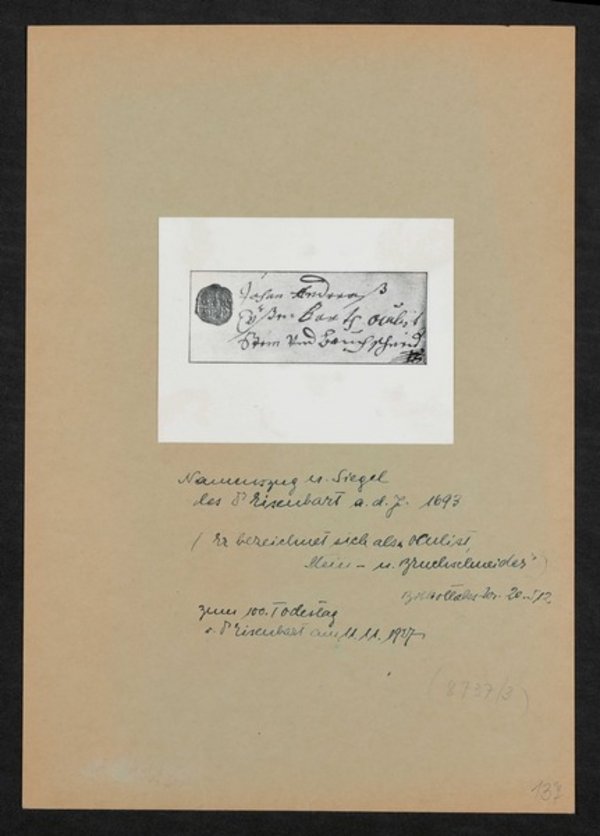 Johan Andreaß
Eÿsenbarth oculist
Stein Vnd Bruchschneid
Namenszug u. Siegel
des Dr Eisenbart a. d. J. 1693
(Er bezeichnet sich als "Okulist,
Stein- u. Bruchschneider")
zum 100. Todestag
v. Dr Eisenbart am 11.11.1927
(8737/3)
137